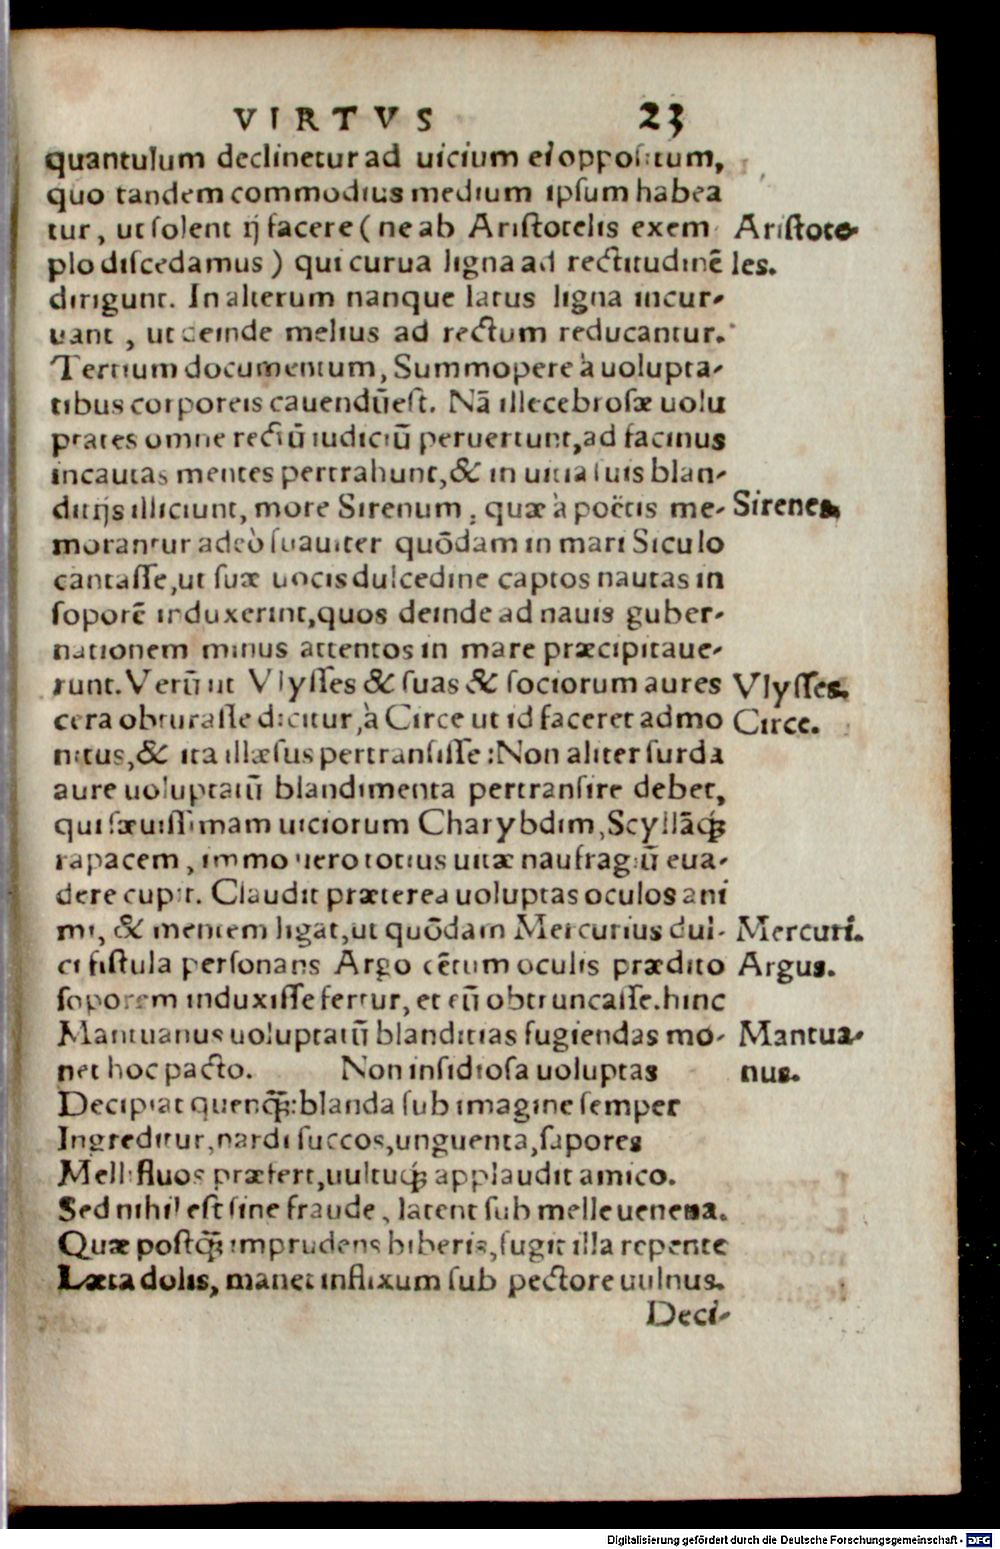 VIRTVS 23
quantulum declinetur ad uicium ei oppositum,
quo tandem commodius medium ipsum habea
tur, ut solent ij facere (ne ab Aristotelis exem
Aristote-
plo discedamus) qui curua ligna ad rectitudinē
les.
dirigunt. In alterum nanque latus ligna incur-
uant, ut deinde melius ad rectum reducantur.
Tertium documentum, Summopere à uolupta-
tibus corporeis cauendūest. Nā illecebrosæ uolu
ptates omne rectū iudiciū peruertunt, ad facinus
incautas mentes pertrahunt, & in uitia suis blan-
ditijs illiciunt, more Sirenum, quæ à poëtis me-
Sirenes.
morantur adeò suauiter quōdam in mari Siculo
cantasse, ut suæ uocis dulcedine captos nautas in
soporē induxerint, quos deinde ad nauis guber-
nationem minus attentos in mare præcipitaue-
runt. Verū ut Vlysses & suas & sociorum aures
Vlysses.
cera obturasse dicitur, à Circe ut id faceret admo
Circe.
nitus, & ita illæsus pertransisse: Non aliter surda
aure uoluptatū blandimenta pertransire debet,
qui sæuissimam uiciorum Charybdim, Scyllāq;
rapacem, immo uero totius uitæ naufragiū eua-
dere cupit. Claudit præterea uoluptas oculos ani
mi, & mentem ligat, ut quōdam Mercurius dul-
Mercuri.
ci fistula personans Argo cētum oculis prædito
Argus.
soporem induxisse fertur, et eū obtruncasse. hinc
Mantuanus uoluptatū blanditias fugiendas mo-
Mantua-
net hoc pacto. Non insidiosa uoluptas
nus.
Decipiat quenq̄;: blanda sub imagine semper
Ingreditur, nardi succos, unguenta, sapores
Mellifluos præfert, uultuq; applaudit amico.
Sed nihil est sine fraude, latent sub melle uenena.
Quæ postq̄; imprudens biberis, fugit illa repente
Læta dolis, manet infixum sub pectore uulnus.
Deci-
Digitalisierung gefördert durch die Deutsche Forschungsgemeinschaft - DFG